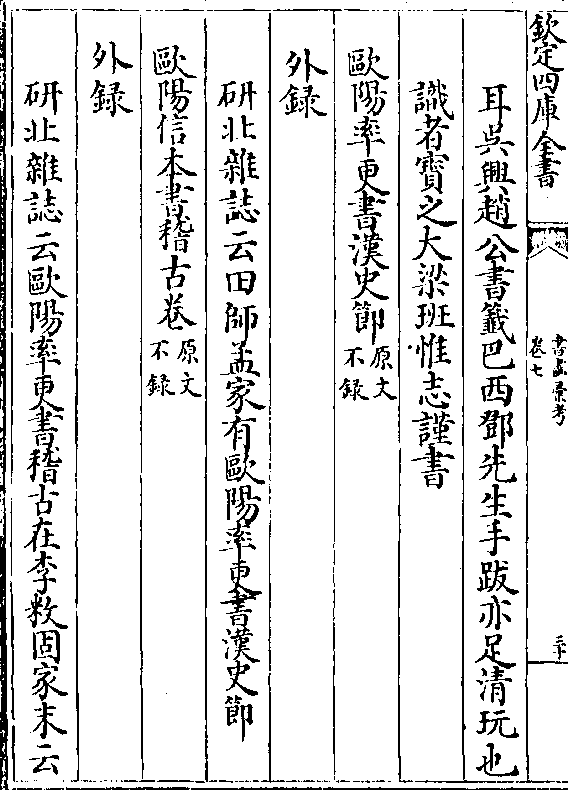 欽定四庫全書
書畫彙考
卷七
三十
耳吳興趙公書籤巴西鄧先生手跋亦足清玩也
識者寶之大梁班惟志謹書
歐陽率更書漢史節原文不錄
外錄
研北雜誌云田師孟家有歐陽率更書漢史節
歐陽信本書稽古卷原文不錄
外錄
研北雜誌云歐陽率更書稽古在李敉固家末云